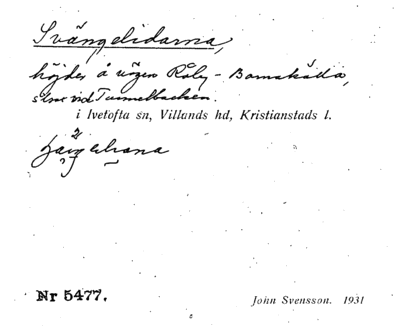 Svängelidarna,
höjder å vägen Råby - Barnakälla,
strax vid Tunnelbacken.
i Ivetofta sn, Villands hd, Kristianstads l.
Nr 5477.
John Svensson. 1931